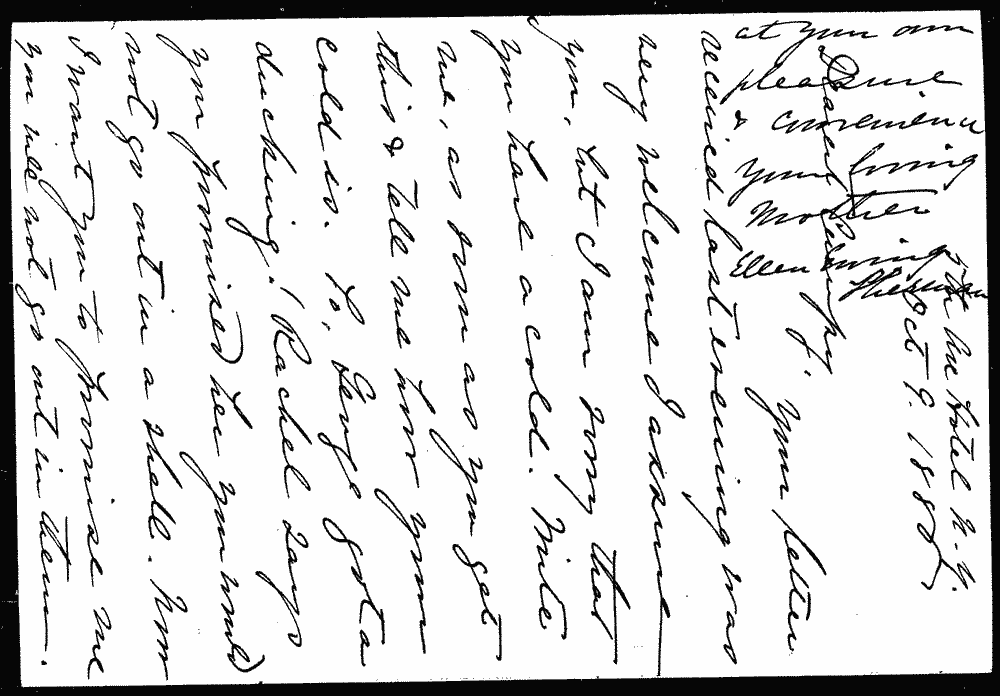 5th Ave Hotel N.Y.
Oct 9. 1885
Dear Cumpy. Your letter
received last evening was
very welcome I assure
you, but I am sorry that
you have a cold. Write
me, as soon as you get
this & tell me how your
cold is. So, George got a
ducking! Rachel says
you promised her you would
not go out in a shell. Now
I want you to promise me
you will not go out in them.
at your own
pleasure
& convenience
Your loving
Mother
Ellen Ewing
Sherman